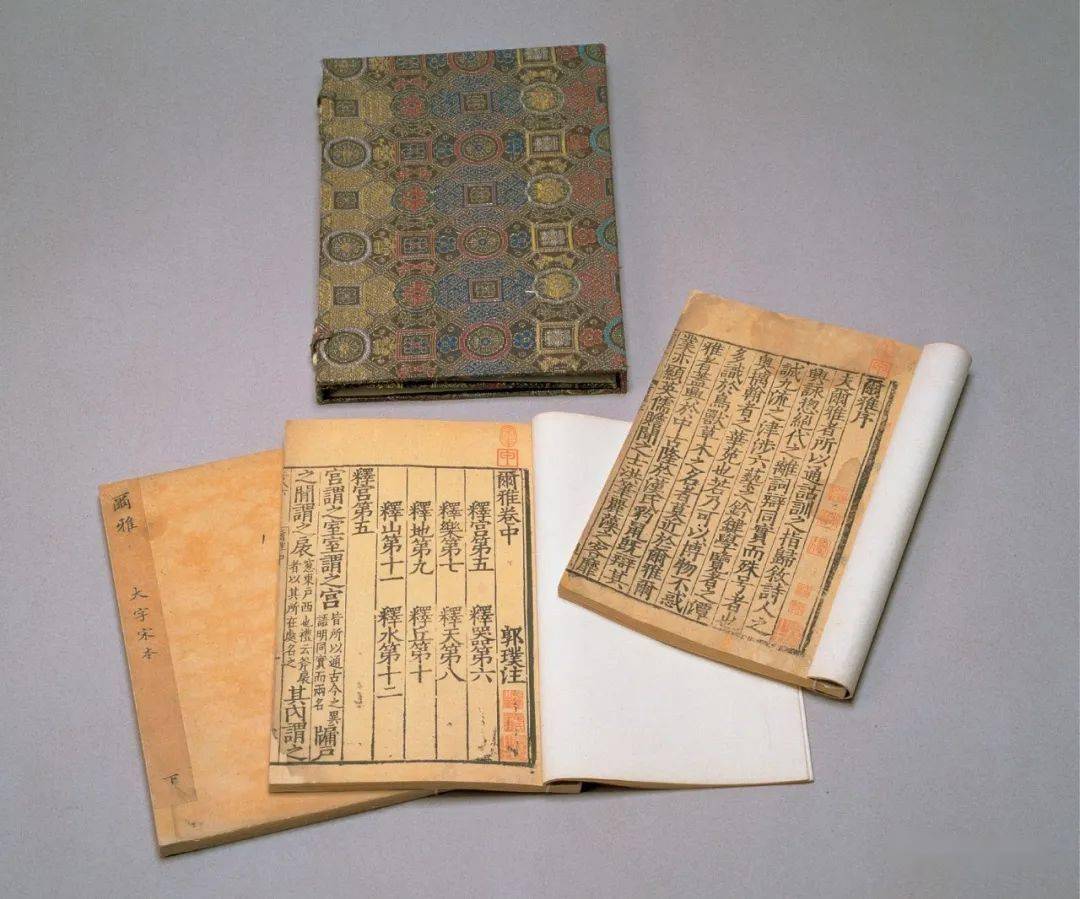 爾雅序
夫爾雅者所以通詁訓之指歸敘詩人之
興詠揔絕代之離詞辯同實而殊号者也
誠九流之津涉六藝之鈐鍵學覽者之潭
奧摛翰者之華苑也若乃可以博物不惑
多識於鳥獸草木之名者莫近於爾雅爾
雅者蓋興於中古隆於漢氏豹鼠既辯其
業亦顯英儒贍聞之士洪筆麗藻之客靡
甲
爾雅卷中 郭璞注
釋宮第五 釋器第六
釋樂第七 釋天第八
釋地第九 釋丘第十
釋山第十一 釋水第十二
釋宮第五
宮謂之室室謂之宮 皆所以通古今之異語明同實而兩名 牖戶
之閒謂之扆 窻東戶西也禮云斧扆者以其所在處名之 其內謂之
爾雅 大字宋本 下